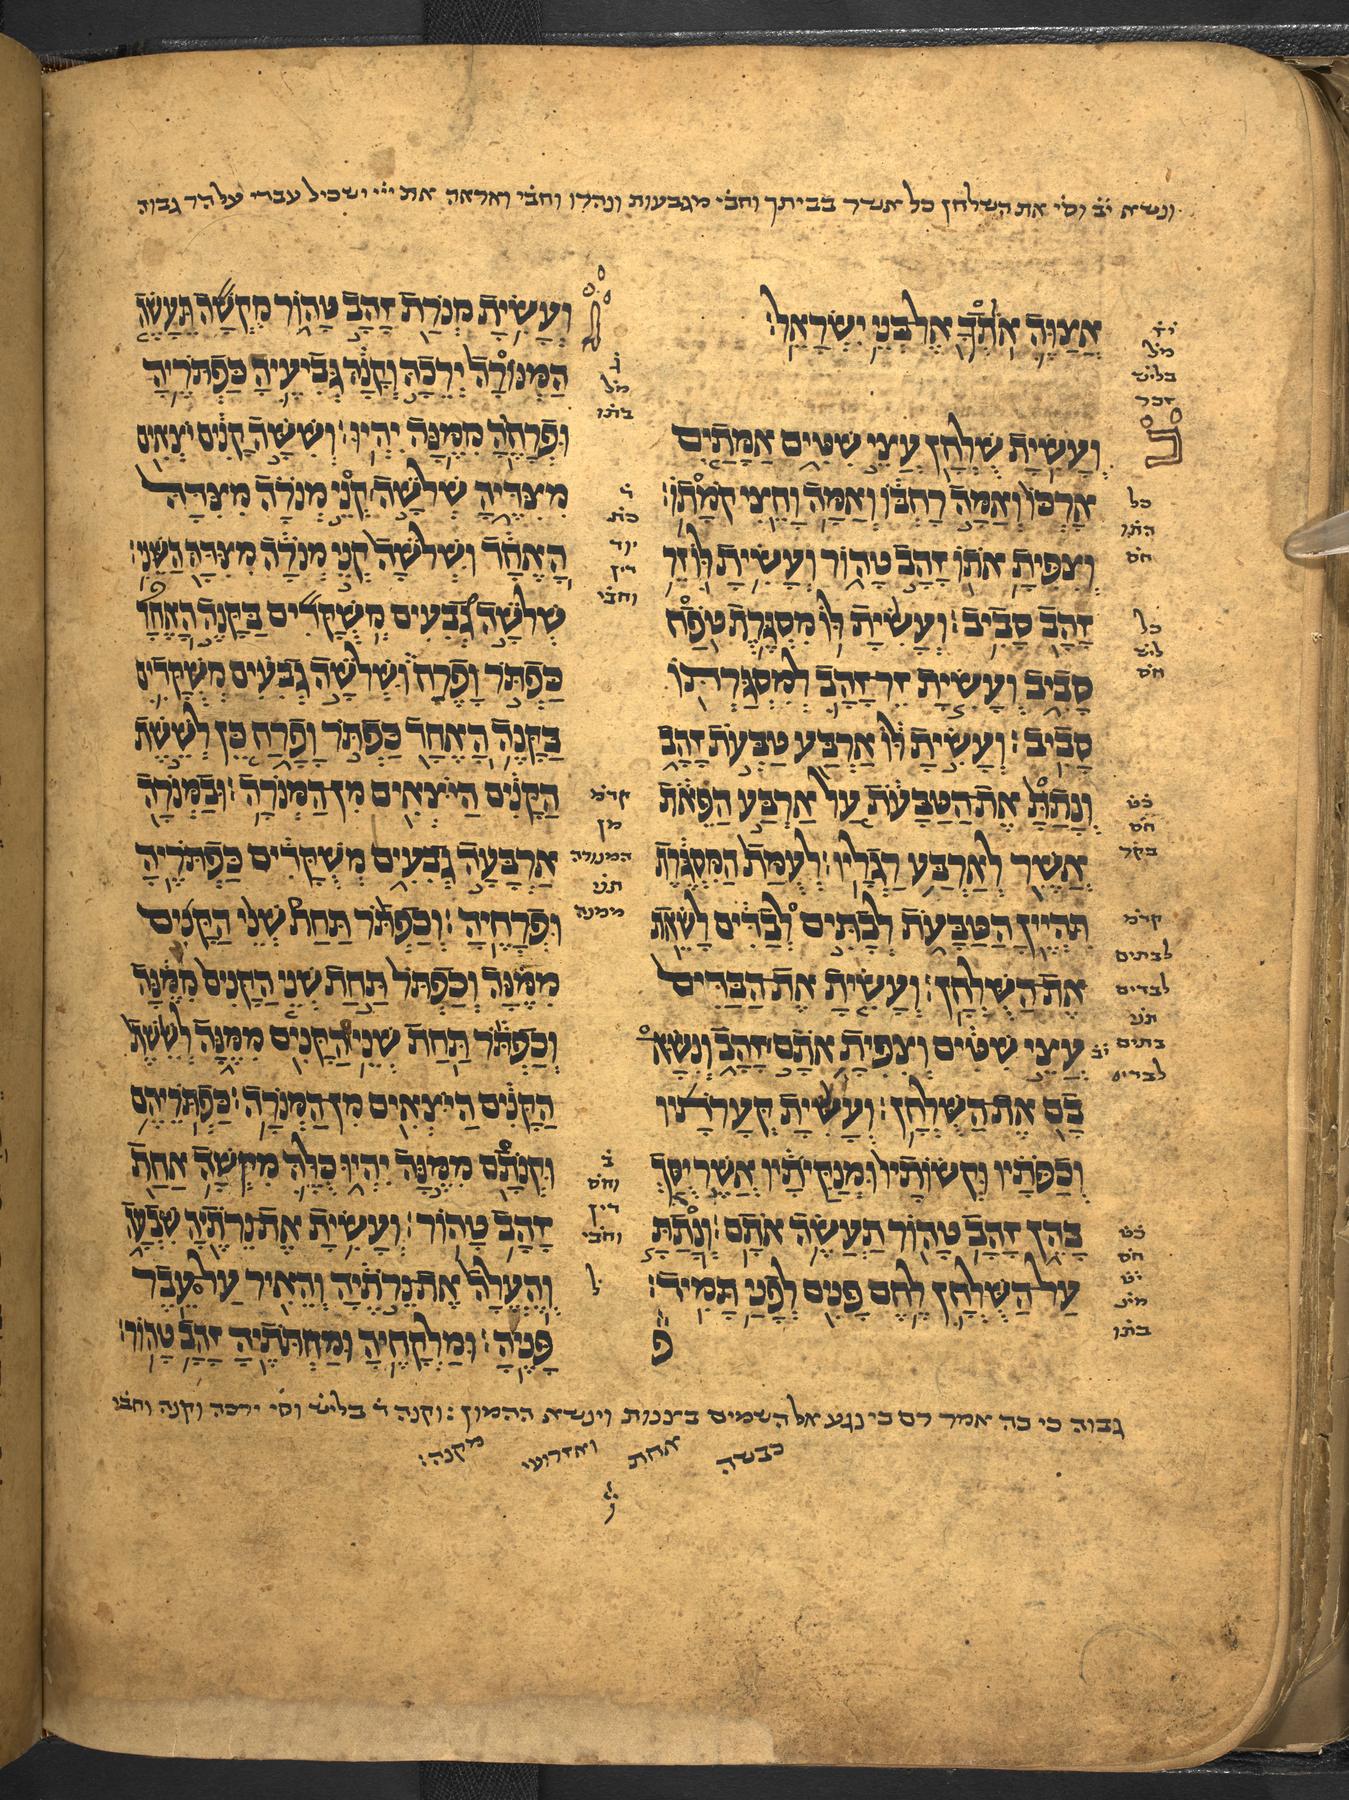 ונשא יׄבׄ וסי׳ את השלחן כל אשר בביתך וחבׄי מגבעות ונהרו וחבׄי ואראה את ייׄי ישכיל עבדי על הר גבוה
אֲצַוֶּה אֹתְךָ אֶל בְּנֵי יִשְׂרָאֵל׃
וְעָשִׂיתָ שֻׁלְחָן עֲצֵי שִׁטִּים אַמָּתַיִם
אָרְכּוֹ וְאַמָּה רָחְבּוֹ וְאַמָּה וָחֵצִי קֹמָתוֹ׃
וְצִפִּיתָ אֹתוֹ זָהָב טָהוֹר וְעָשִׂיתָ לּוֹ זֵר
זָהָב סָבִיב׃ וְעָשִׂיתָ לּוֹ מִסְגֶּרֶת טֹפַח
סָבִיב וְעָשִׂיתָ זֵר זָהָב לְמִסְגַּרְתּוֹ
סָבִיב׃ וְעָשִׂיתָ לּוֹ אַרְבַּע טַבְּעֹת זָהָב
וְנָתַתָּ אֶת הַטַּבָּעֹת עַל אַרְבַּע הַפֵּאֹת
אֲשֶׁר לְאַרְבַּע רַגְלָיו׃ לְעֻמַּת הַמִּסְגֶּרֶת
תִּהְיֶיןָ הַטַּבָּעֹת לְבָתִּים לְבַדִּים לָשֵׂאת
אֶת הַשֻּׁלְחָן׃ וְעָשִׂיתָ אֶת הַבַּדִּים
עֲצֵי שִׁטִּים וְצִפִּיתָ אֹתָם זָהָב וְנִשָּׂא
בָם אֶת הַשֻּׁלְחָן׃ וְעָשִׂיתָ קְּעָרֹתָיו
וְכַפֹּתָיו וּקְשׂוֹתָיו וּמְנַקִּיֹּתָיו אֲשֶׁר יֻסַּךְ
בָּהֵן זָהָב טָהוֹר תַּעֲשֶׂה אֹתָם׃ וְנָתַתָּ
עַל הַשֻּׁלְחָן לֶחֶם פָּנִים לְפָנַי תָּמִיד׃
פ
יׄדׄ
מׄלׄ
בליש
דבר
כל
התו
חס
כל
ליש
חס
כׄטׄ
חס
בקר
קדמ
לבתים
לבדים
תנׄ
בתים
לבדים
יׄבׄ
כׄטׄ
חס
בתו
וְעָשִׂיתָ מְנֹרַת זָהָב טָהוֹר מִקְשָׁה תֵּעָשֶׂה
הַמְּנוֹרָה יְרֵכָהּ וְקָנָהּ גְּבִיעֶיהָ כַּפְתֹּרֶיהָ
וּפְרָחֶהָ מִמֶּנָּה יִהְיוּ׃ וְשִׁשָּׁה קָנִים יֹצְאִים
מִצִּדֶּיהָ שְׁלֹשָׁה קְנֵי מְנֹרָה מִצִּדָּהּ
הָאֶחָד וּשְׁלֹשָׁה קְנֵי מְנֹרָה מִצִּדָּהּ הַשֵּׁנִי׃
שְׁלֹשָׁה גְבִעִים מְשֻׁקָּדִים בַּקָּנֶה הָאֶחָד
כַּפְתֹּר וָפֶרַח וּשְׁלֹשָׁה גְבִעִים מְשֻׁקָּדִים
בַּקָּנֶה הָאֶחָד כַּפְתֹּר וָפָרַח כֵּן לְשֵׁשֶׁת
הַקָּנִים הַיֹּצְאִים מִן הַמְּנֹרָה׃ וּבַמְּנֹרָה
אַרְבָּעָה גְבִעִים מְשֻׁקָּדִים כַּפְתֹּרֶיהָ
וּפְרָחֶיהָ׃ וְכַפְתֹּר תַּחַת שְׁנֵי הַקָּנִים
מִמֶּנָּה וְכַפְתֹּר תַּחַת שְׁנֵי הַקָּנִים מִמֶּנָּה
וְכַפְתֹּר תַּחַת שְׁנֵי הַקָּנִים מִמֶּנָּה לְשֵׁשֶׁת
הַקָּנִים הַיֹּצְאִים מִן הַמְּנֹרָה׃ כַּפְתֹּרֵיהֶם
וּקְנֹתָם מִמֶּנָּה יִהְיוּ כֻּלָּהּ מִקְשָׁה אַחַת
זָהָב טָהוֹר׃ וְעָשִׂיתָ אֶת נֵרֹתֶיהָ שִׁבְעָה
וְהֶעֱלָה אֶת נֵרֹתֶיהָ וְהֵאִיר עַל עֵבֶר
פָּנֶיהָ׃ וּמַלְקָחֶיהָ וּמַחְתֹּתֶיהָ זָהָב טָהוֹר׃
גׄ
מׄלׄ
בתו
דׄ
כת
יוד
דין
וחבׄי
קדמ
מן
המנורה
תנׄ
ממנה
בׄ
וחס
דין
וחבׄי
לׄ
גבוה כי כה אמר רם כי נגע אל השמים בצנות וינשא ההמון׃ וקנה דׄ בליש וסי׳ ירכה וקנה וחבׄו
כבשה אחת ואזרועי מקנה׃